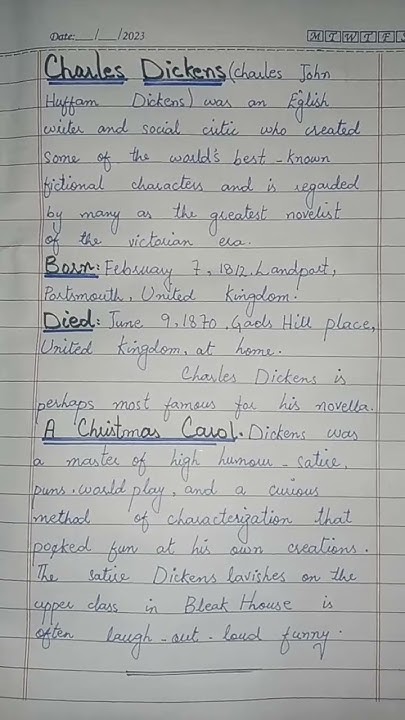 Date:__/__/2023
M T W T F S
Charles Dickens (charles John
Huffam Dickens) was an Eglish
writer and social critic who created
some of the world's best-known
fictional characters and is regarded
by many as the greatest novelist
of the victorian era.
Born: February 7, 1812. Landport,
Portsmouth, United Kingdom.
Died: June 9, 1870. Gads Hill place,
United Kingdom, at home.
Charles Dickens is
perhaps most famous for his novella.
A Christmas Carol. Dickens was
a master of high humour-satire,
puns, world play, and a curious
method of characterization that
pocked fun at his own creations.
The satire Dickens lavishes on the
upper class in Bleak House is
often laugh-out-loud funny.